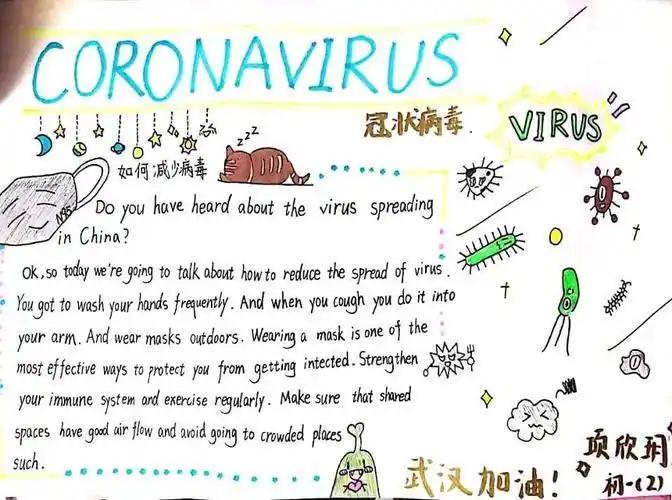 CORONAVIRUS
冠状病毒.
VIRUS
如何减少病毒
zzz
N95
Do you have heard about the virus spreading
in China?
OK, so today we're going to talk about how to reduce the spread of virus.
You got to wash your hands frequently. And when you cough you do it into
your arm. And wear masks outdoors. Wearing a mask is one of the
most effective ways to protect you from getting intected. Strengthen
your immune system and exercise regularly. Make sure that shared
spaces have good air flow and avoid going to crowded places
such.
武汉加油!
项欣玥
初一(2)